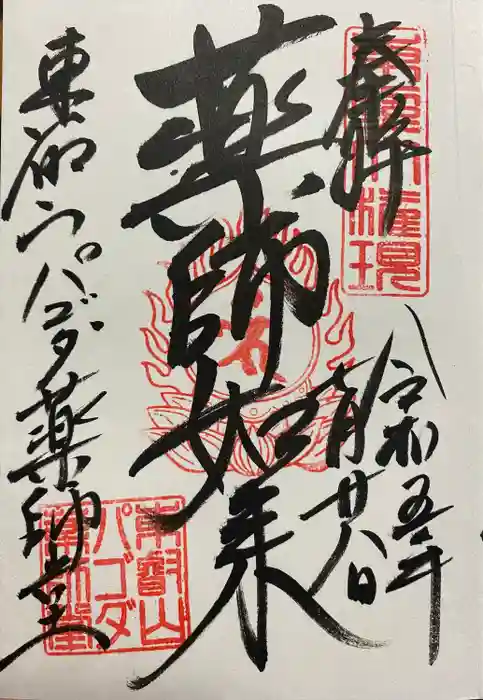 奉拝
令和五年
月廿八日
薬師如来
東叡山パゴダ薬師堂
権現
東叡山
パゴダ
薬師堂